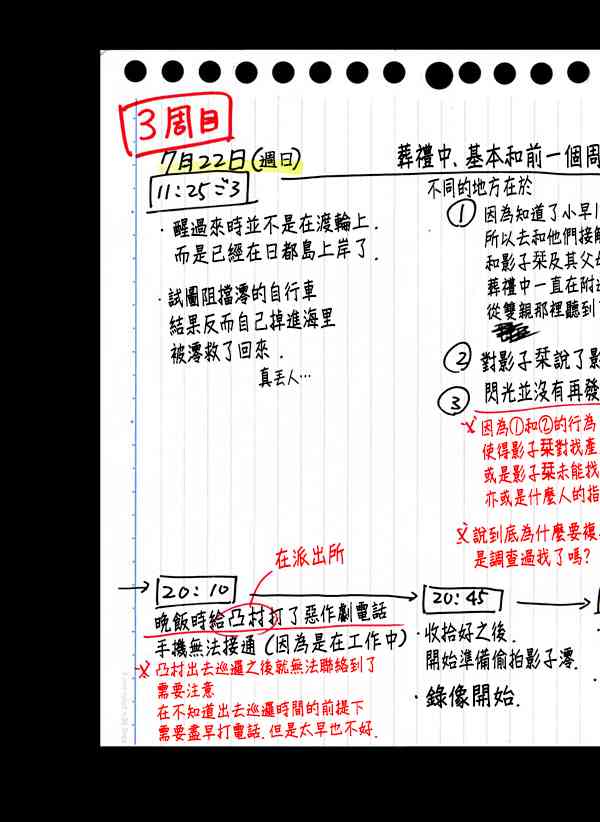 3周目
7月22日(週日)
11:25ごろ
・醒過來時並不是在渡輪上.
而是已經在日都島上岸了.
・試圖阻擋澪的自行車
結果反而自己掉進海里
被澪救了回來.
真丟人…
葬禮中、基本和前一個周
不同的地方在於
① 因為知道了小早川
所以去和他們接觸
和影子栞及其父母
葬禮中一直在附近
從雙親那裡聽到了
② 對影子栞說了影
③ 閃光並沒有再發
※因為①和②的行為
使得影子栞對我產
或是影子栞未能找
亦或是什麼人的指
※說到底為什麼要複
是調查過我了嗎?
在派出所
20:10
晚飯時給凸村打了惡作劇電話
手機無法接通(因為是在工作中)
※凸村出去巡邏之後就無法聯絡到了
需要注意
在不知道出去巡邏時間的前提下
需要盡早打電話.但是太早也不好.
20:45
・收拾好之後.
開始準備偷拍影子澪.
・錄像開始.